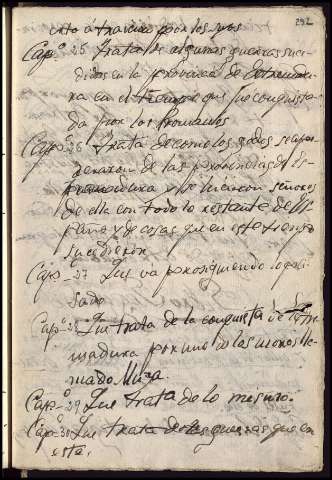 292
por los suos
Cap.º 25 trata de algunas guerras suce
didas en la provincia de Extremadu
ra en el tiempo que fue conquista
da por los Romanos
Cap.º 26 trata de como los godos se apo
deraron de las provincias de Es
tremadura y se hicieron señores
de ella con todo lo restante de Es
paña y de cosas que en este tiempo
sucedieron
Cap.º 27 Que va prosiguiendo lo pa
sado
Cap.º 28 Que trata de la conquista de Estre
madura por uno de los moros lla
mado Muza.
Cap.º 29 Que trata de lo mismo.
Cap.º 30 Que trata de las guerras que en
esta.